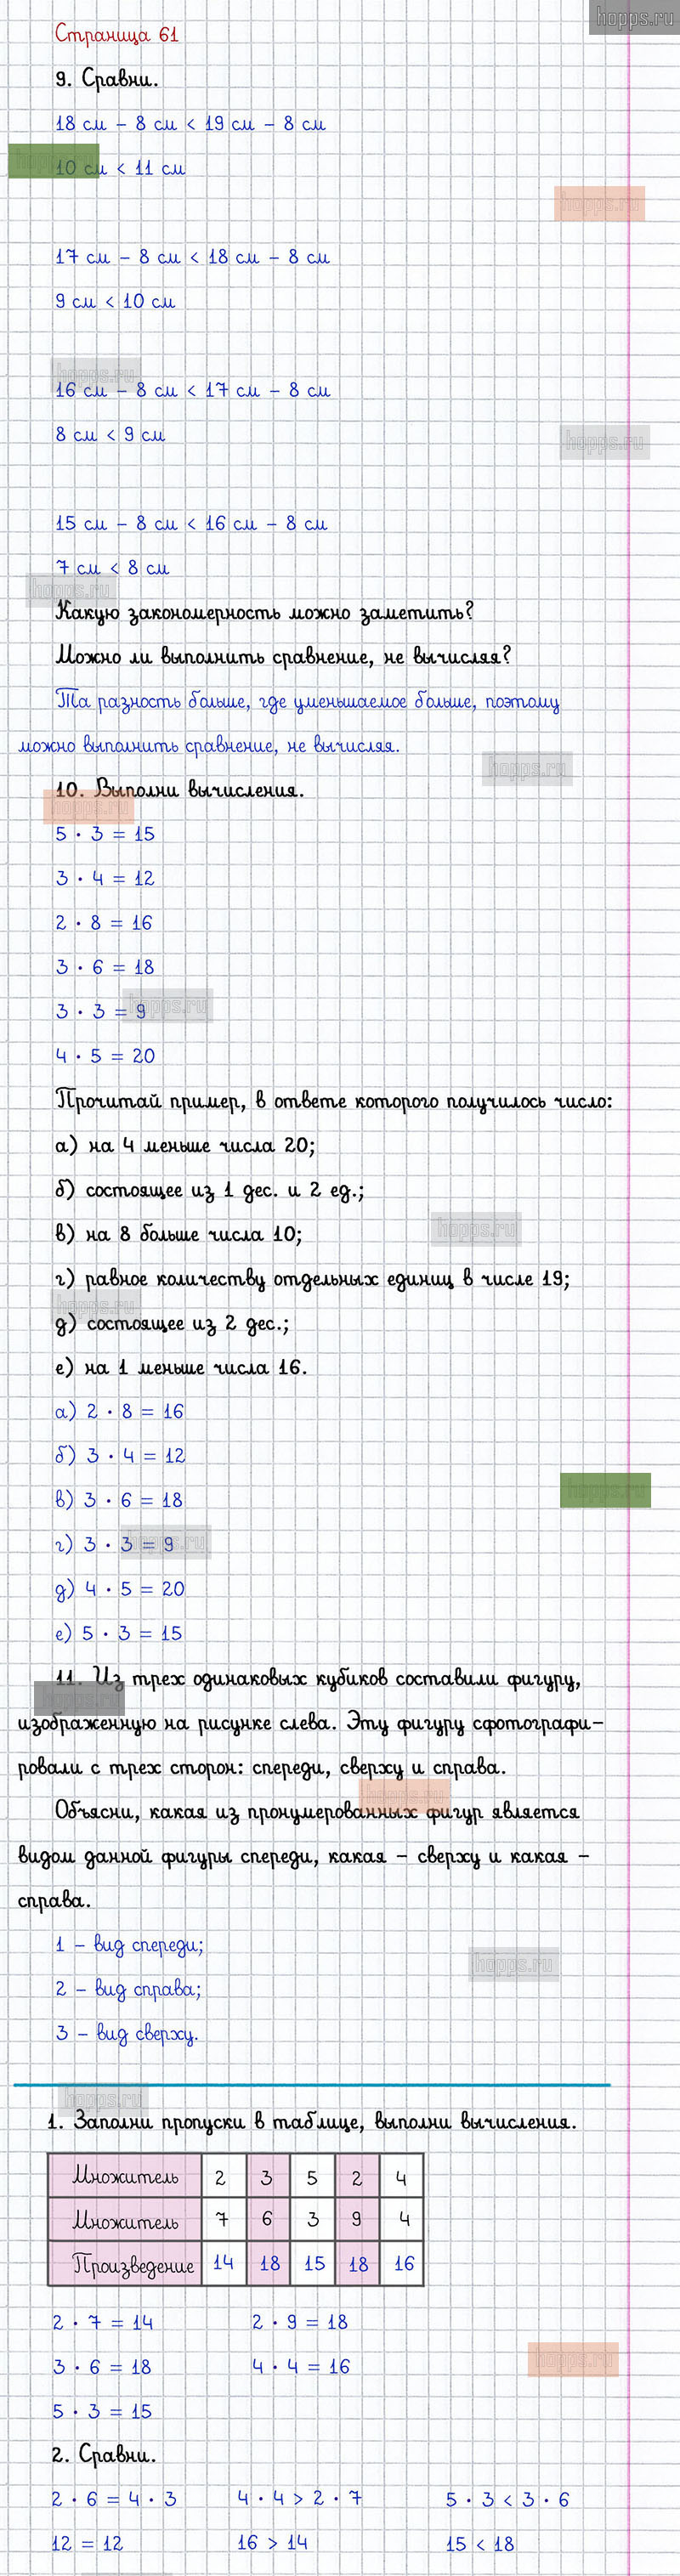 hopps.ru
Страница 61
9. Сравни.
18 см - 8 см < 19 см - 8 см
10 см < 11 см
hopps.ru
17 см - 8 см < 18 см - 8 см
9 см < 10 см
hopps.ru
16 см - 8 см < 17 см - 8 см
8 см < 9 см
hopps.ru
15 см - 8 см < 16 см - 8 см
7 см < 8 см
hopps.ru
Какую закономерность можно заметить?
Можно ли выполнить сравнение, не вычисляя?
Та разность больше, где уменьшаемое больше, поэтому
можно выполнить сравнение, не вычисляя.
hopps.ru
10. Выполни вычисления.
hopps.ru
5 · 3 = 15
3 · 4 = 12
2 · 8 = 16
3 · 6 = 18
3 · 3 = 9
hopps.ru
4 · 5 = 20
Прочитай пример, в ответе которого получилось число:
а) на 4 меньше числа 20;
б) состоящее из 1 дес. и 2 ед.;
в) на 8 больше числа 10;
hopps.ru
г) равное количеству отдельных единиц в числе 19;
hopps.ru
д) состоящее из 2 дес.;
е) на 1 меньше числа 16.
а) 2 · 8 = 16
б) 3 · 4 = 12
в) 3 · 6 = 18
hopps.ru
г) 3 · 3 = 9
hopps.ru
д) 4 · 5 = 20
е) 5 · 3 = 15
11. Из трех одинаковых кубиков составили фигуру,
hopps.ru
изображенную на рисунке слева. Эту фигуру сфотографи-
ровали с трех сторон: спереди, сверху и справа.
hopps.ru
Объясни, какая из пронумерованных фигур является
видом данной фигуры спереди, какая - сверху и какая -
справа.
1 - вид спереди;
hopps.ru
2 - вид справа;
3 - вид сверху.
hopps.ru
1. Заполни пропуски в таблице, выполни вычисления.
Множитель 2 3 5 2 4
Множитель 7 6 3 9 4
Произведение 14 18 15 18 16
2 · 7 = 14 2 · 9 = 18
3 · 6 = 18 4 · 4 = 16
hopps.ru
5 · 3 = 15
2. Сравни.
2 · 6 = 4 · 3 4 · 4 > 2 · 7 5 · 3 < 3 · 6
12 = 12 16 > 14 15 < 18